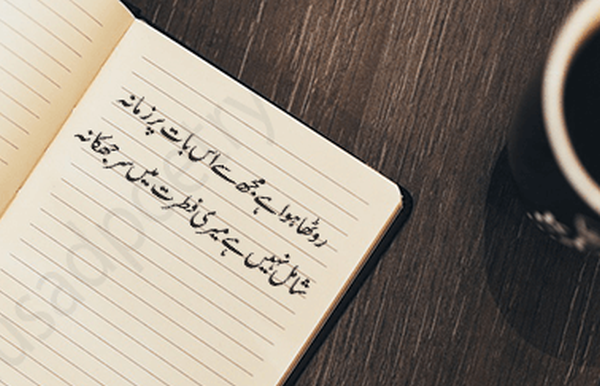 روٹھا ہوا ہے مجھ سے اس بات پر زمانہ
شامل نہیں ہے میری فطرت میں سر جھکانہ
usadpoetry